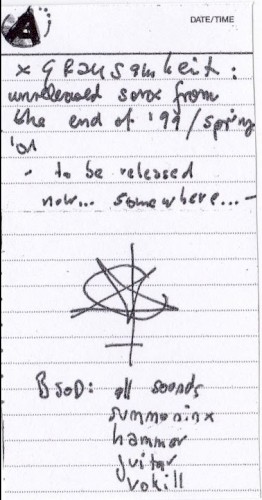 DATE/TIME
x GRausamkeit:
unreleased sonx from
the end of '99/spring
'01
- to be released
now... somewhere... -
BSOD: all sounds
summoninx
hammer
guitar
vokill